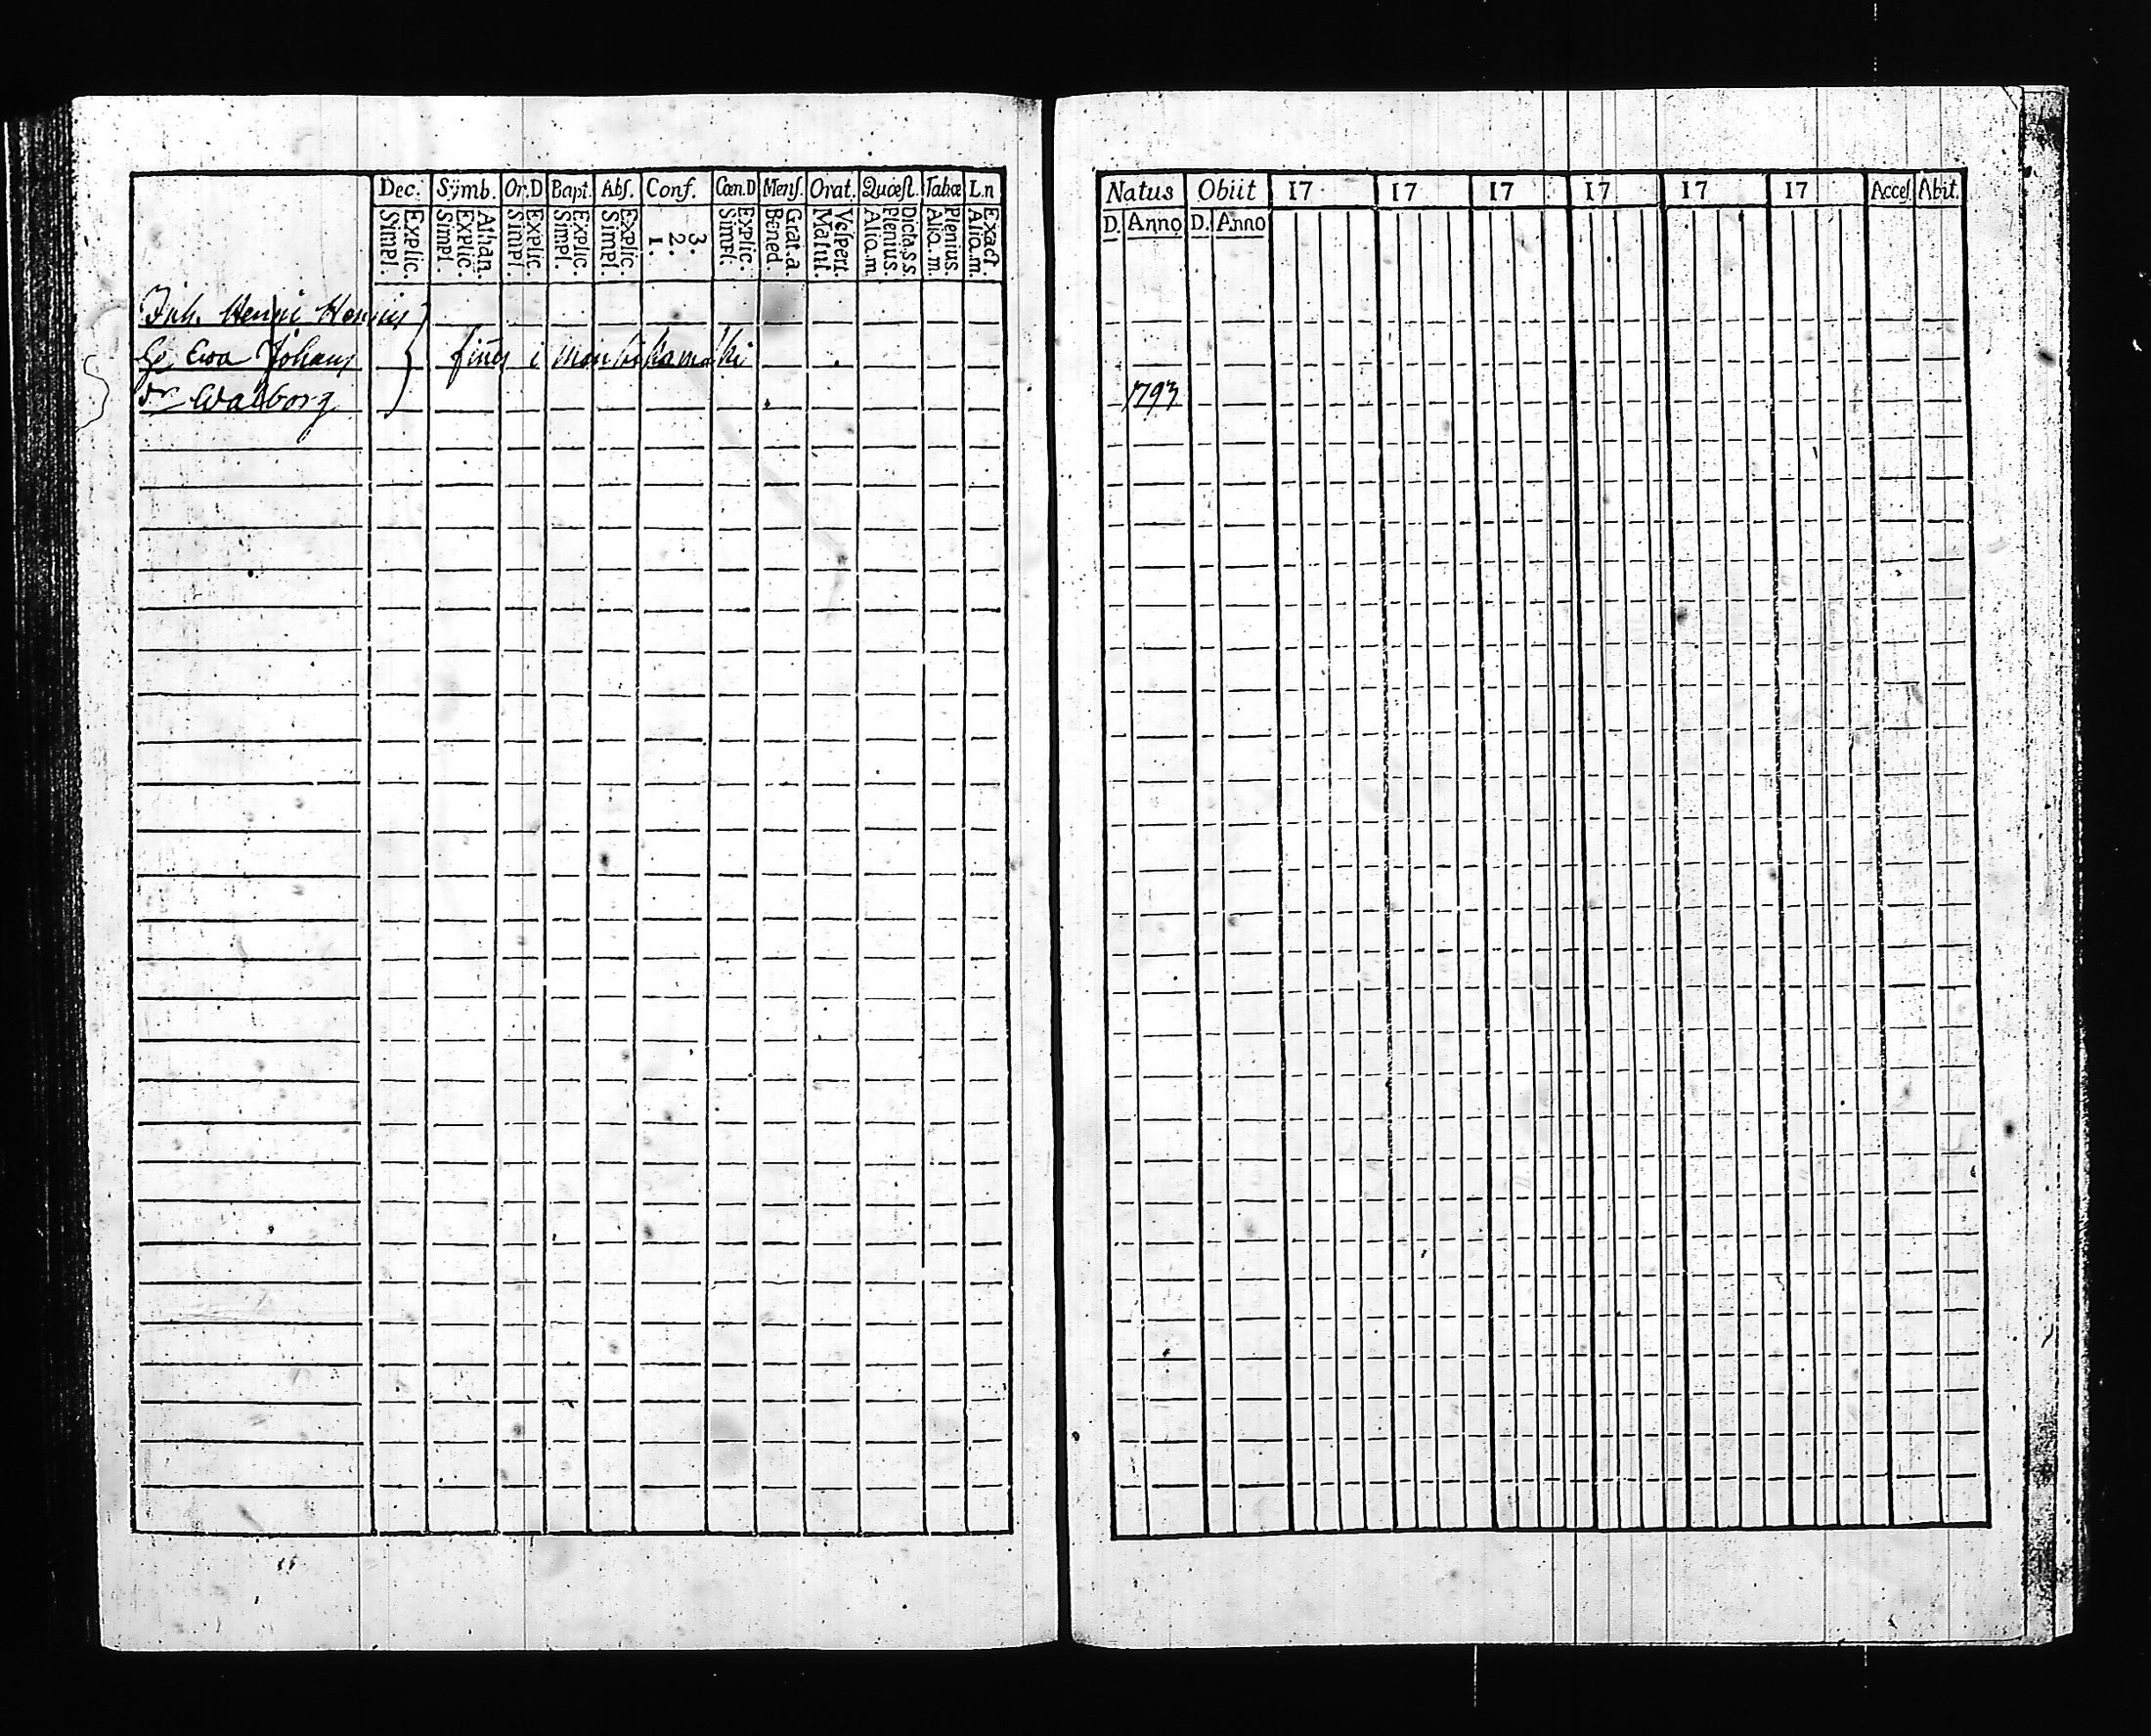 Dec. Symb. Or.D Bapt. Abſ. Conf. Cœn.D Menſ. Orat. Quœſt. Tabœ L.n
Explic. Simpl. Athan. Explic. Simpl. Explic. Simpl. Explic. Simpl. Explic. Simpl. 3. 2. 1. Explic. Simpl. Grat.a. Bened Veſpert. Matut. Dicta.s.s. Plenius. Aliq.m. Plenius. Aliq.m. Exact. Aliq.m.
Inh. Henric Henrics
Ewa Johans finnes i
Dr Walborg
Natus Obiit 17 17 17 17 17 17 Acceſ Abit.
D. Anno D. Anno
1793